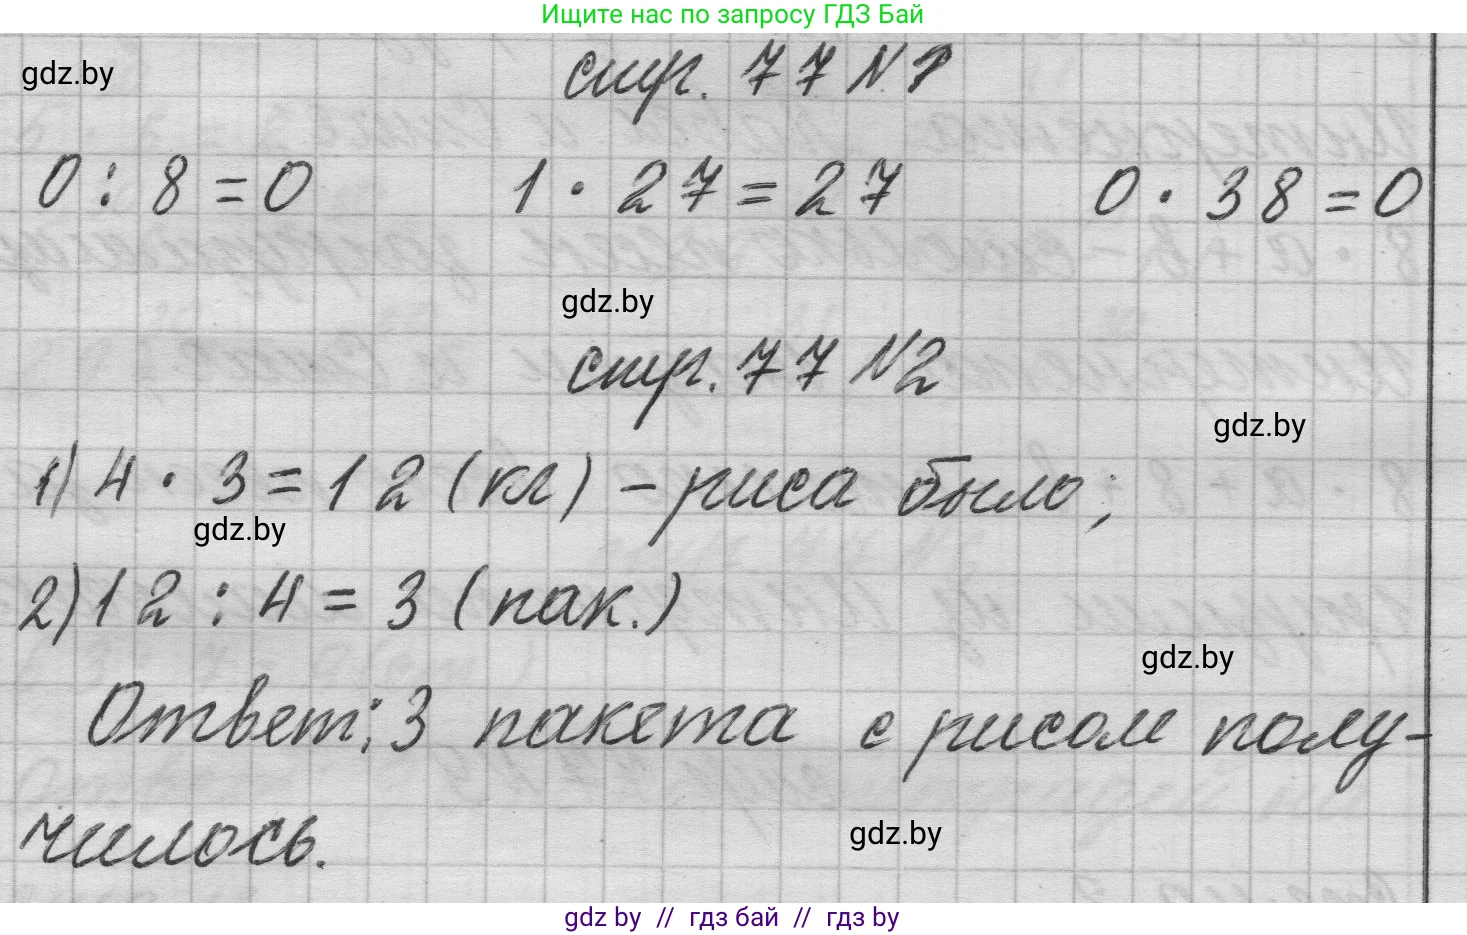 Ищите нас по запросу ГДЗ Бай
gdz.by
стр. 77 №1
0 : 8 = 0 1 · 27 = 27 0 · 38 = 0
gdz.by
стр. 77 №2
gdz.by
1) 4 · 3 = 12 (кг) – риса было;
gdz.by
2) 12 : 4 = 3 (пак.)
gdz.by
Ответ: 3 пакета с рисом полу-
чилось.
gdz.by
gdz by // гдз бай // гдз by